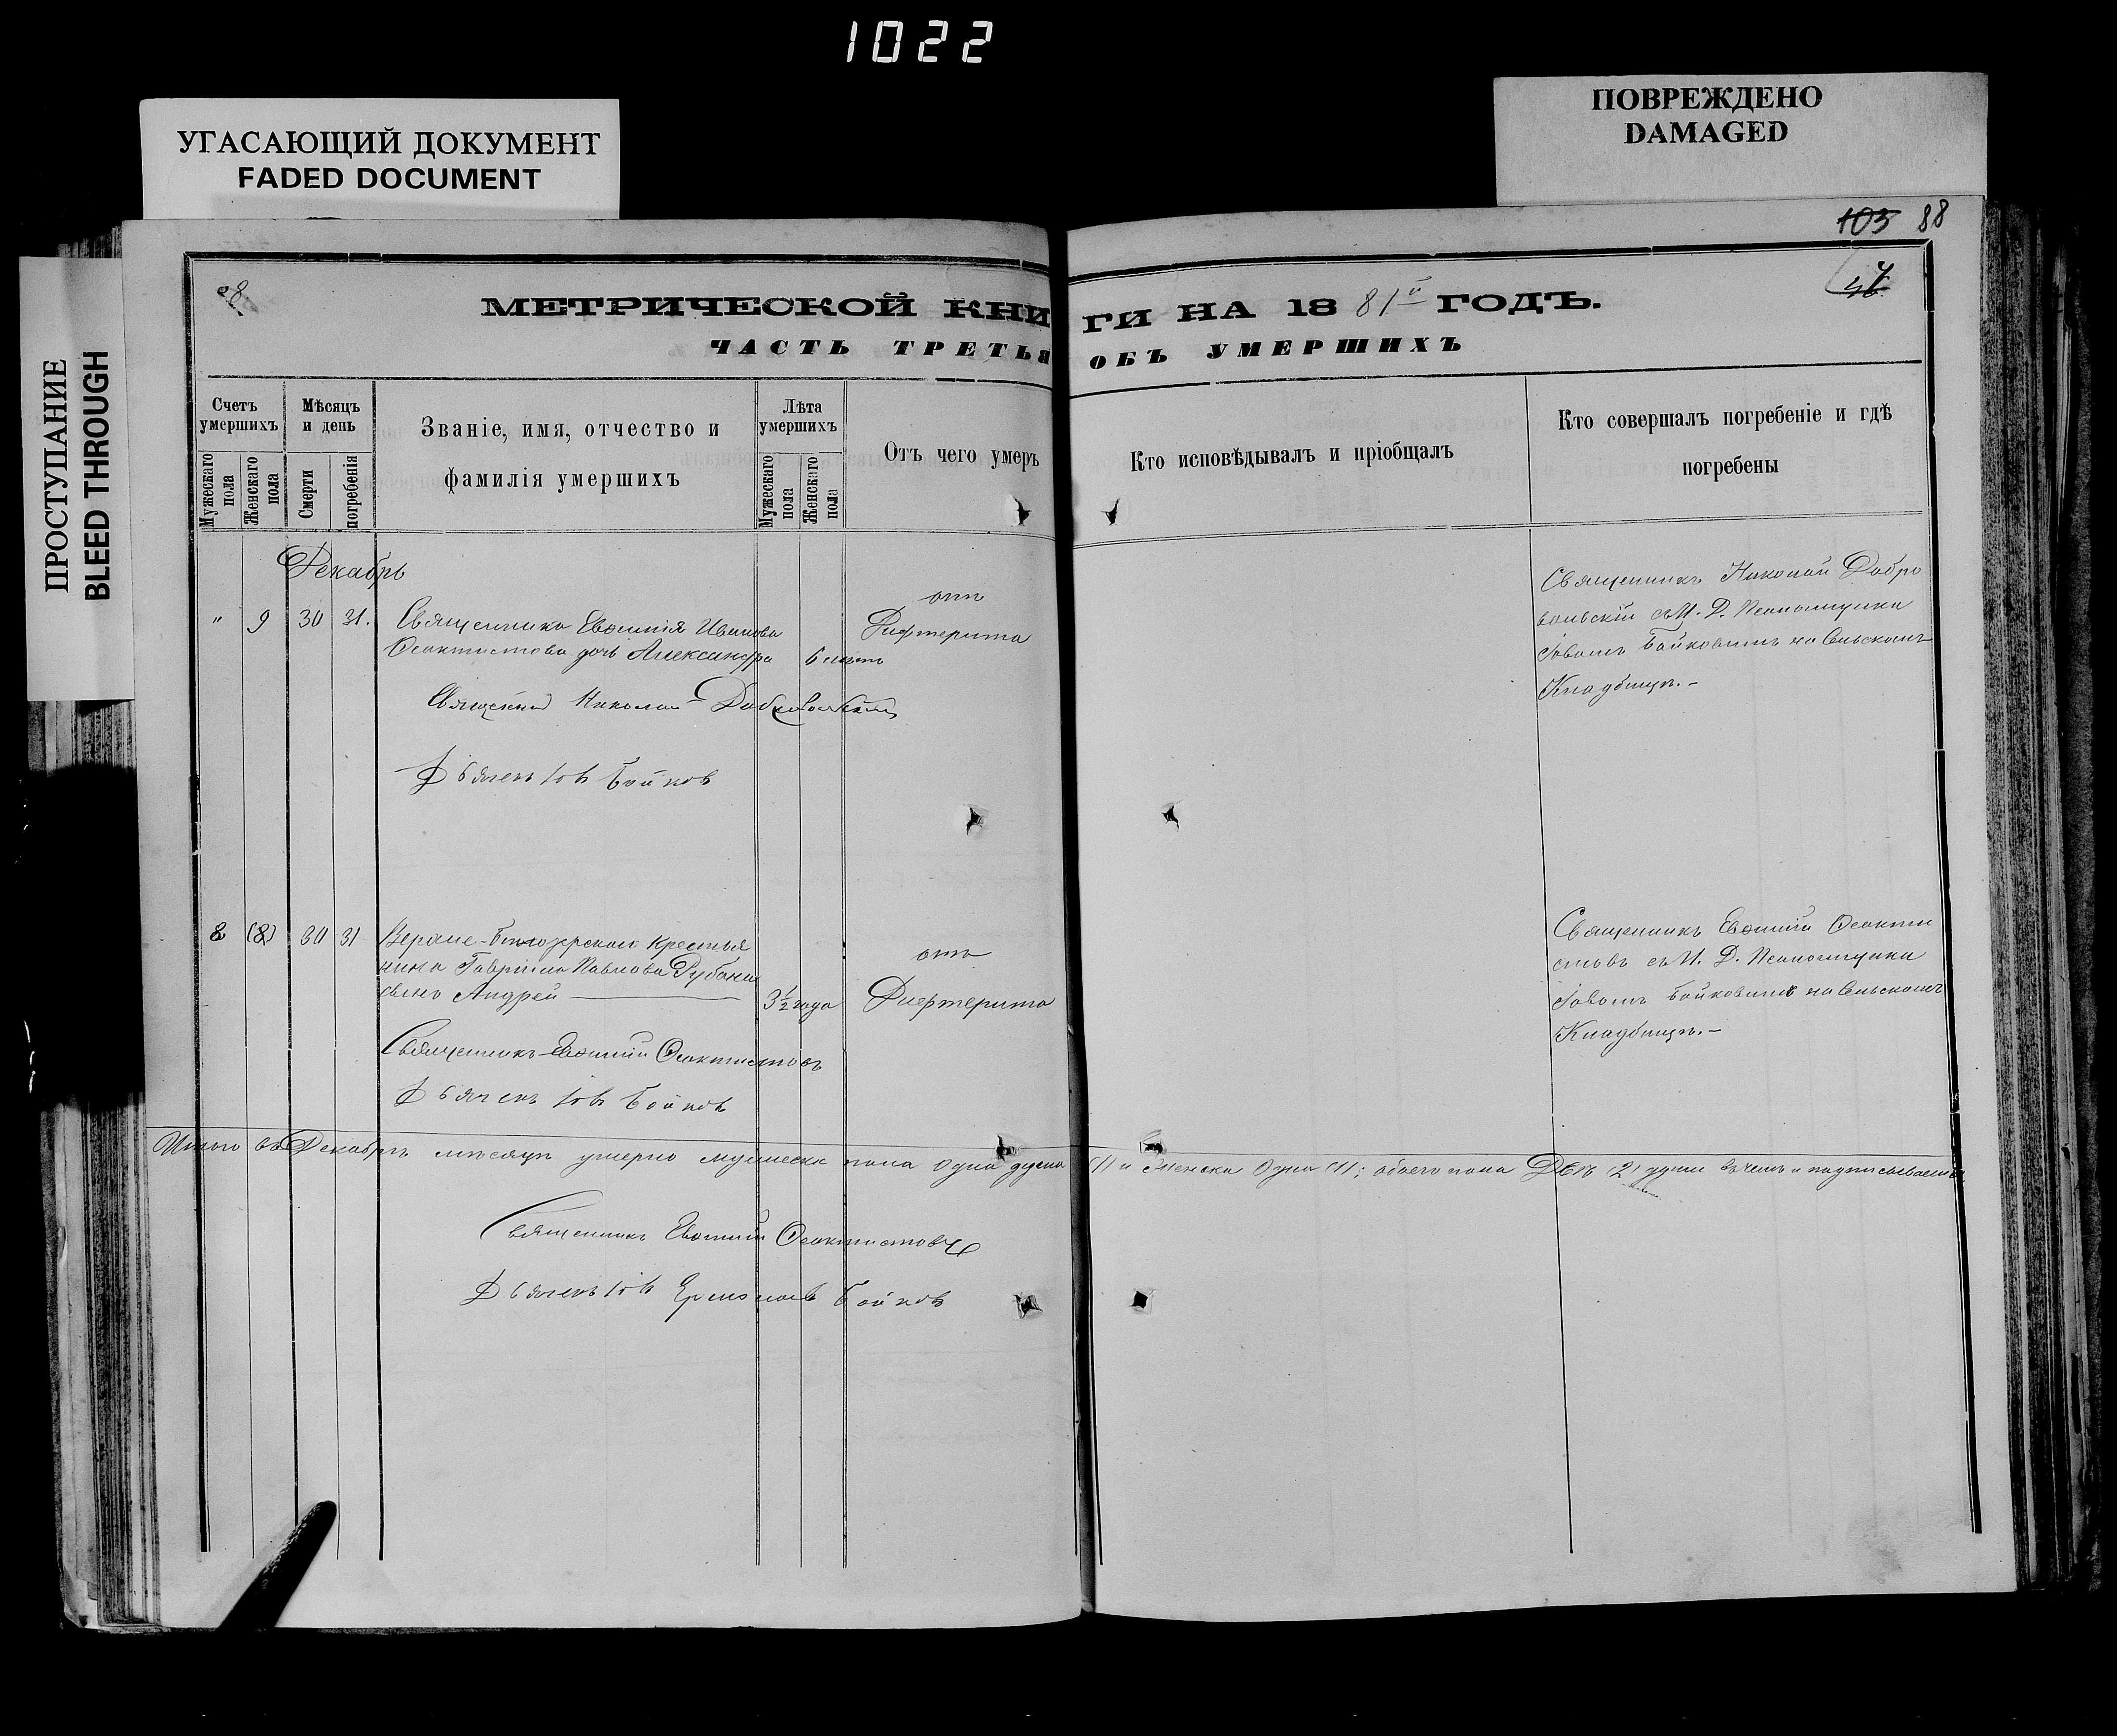 1022
УГАСАЮЩИЙ ДОКУМЕНТ
FADED DOCUMENT
ПОВРЕЖДЕНО
DAMAGED
ПРОСТУПАНИЕ
BLEED THROUGH
103 88
МЕТРИЧЕСКОЙ КНИГИ НА 1881й ГОДЪ.
ЧАСТЬ ТРЕТЬЯ ОБЪ УМЕРШИХЪ
Счетъ умершихъ
Мужескаго пола
Женскаго пола
Мѣсяцъ и день
Смерти
погребенія
Званіе, имя, отчество и
фамилія умершихъ
Лѣта умершихъ
Мужескаго пола
Женскаго пола
Отъ чего умеръ
Кто исповѣдывалъ и пріобщалъ
Кто совершалъ погребеніе и гдѣ
погребены
Декабрь
" 9 30 31.
Священника Евѳимія Иванова
Ѳеоктистова дочь Александра
6 лѣтъ
отъ
Дифтерита
Священникъ Николай Добро
вольскій съ И. Д. Псаломщика
Іовомъ Бойковымъ на Сельскомъ
Кладбищѣ.-
Священникъ Николай Добровольскій
Дьячекъ Іовъ Бойков
8 (8) 30 31
крестья
нина Гавріила Павлова Рубана
сынъ Андрей
3½ года
отъ
Дифтерита
Священникъ Евѳимій Ѳеокти
стовъ съ И. Д. Псаломщика
Іовомъ Бойковымъ на Сельскомъ
Кладбищѣ.-
Священникъ Евѳимій Ѳеоктистовъ
Дьячекъ Іовъ Бойков
Итого въ Декабрѣ мѣсяцѣ умерло мужеска пола одна душа (1) и женска Одна (1); обоего пола Двѣ (2) души въ чемъ и подписываемся
Священникъ Евѳимій Ѳеоктистовъ
Дьячекъ Іовъ Ермолаев Бойков